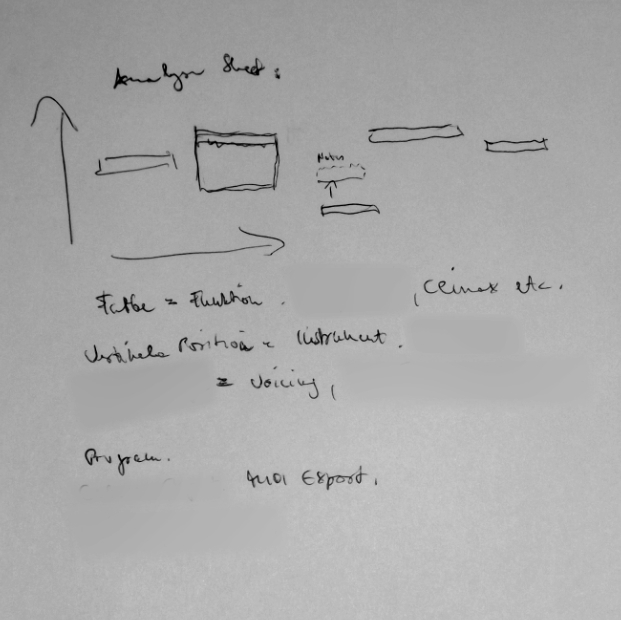 Analyse Sheet:
Notes
Farbe = Funktion. , Climax etc.
Vertikale Position = Instrument.
= Voicing,
Program.
Export.